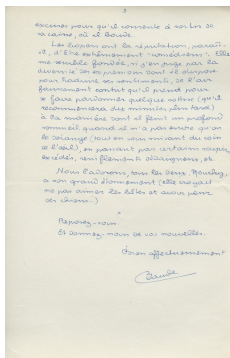 3
excuses pour qu'il consente à sortir de
sa caisse, où il boude.
Les chiens ont la réputation, paraît-
il, d'être extrêmement "comédiens". Elle
me semble fondée, si j'en juge par la
diversité des expressions dont il dispose
pour traduire ses sentiments, de l'air
faussement contrit qu'il prend pour
se faire pardonner quelque sottise (qu'il
recommencera deux minutes plus tard),
à la manière dont il feint un profond
sommeil quand il n'a pas envie qu'on
le dérange (tout en vous suivant du coin
de l'œil), en passant par certains
excédés, reniflements dédaigneux, etc.
Nous l'adorons, tous les deux,
à son grand étonnement (elle croyait
ne pas aimer les bêtes et avoir peur
des chiens...)
Reposez-vous
Et donnez-nous de vos nouvelles.
Bien affectueusement
Claude